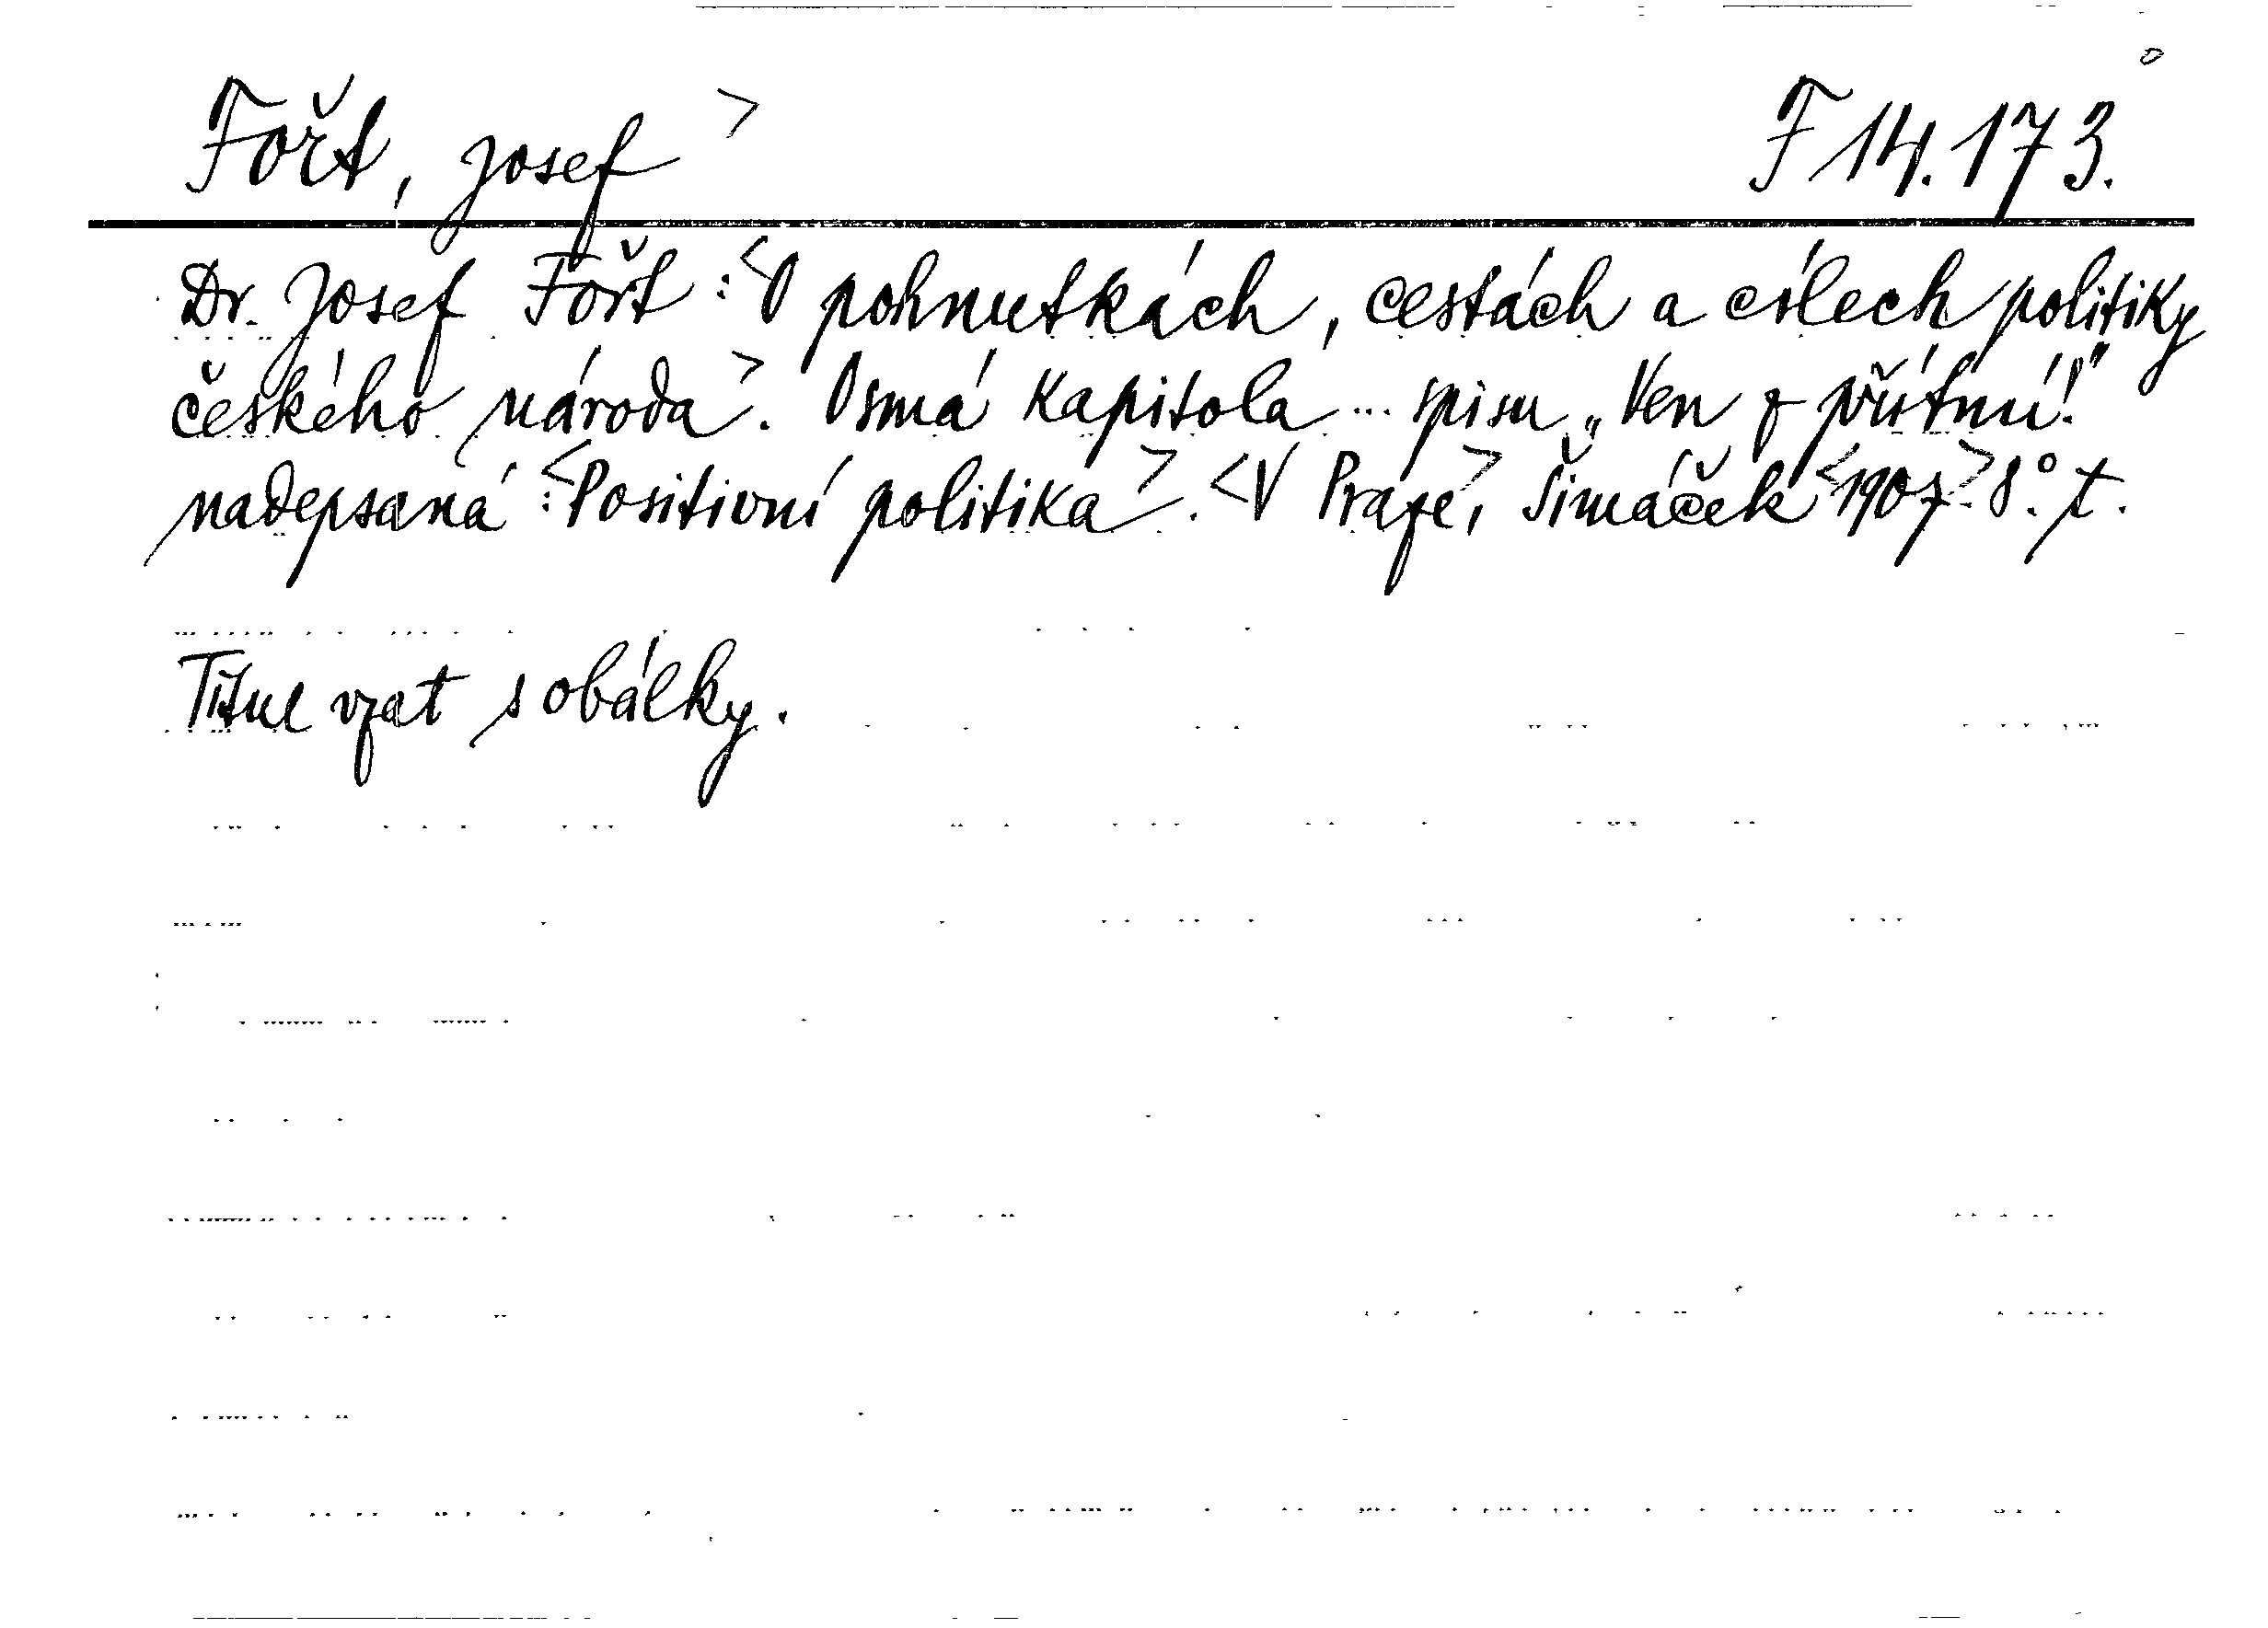 Fořt, Josef > F 14.173.
Dr. Josef Fořt : <O pohnutkách, cestách a cílech politiky
českého národa>. Osmá kapitola ... spisu „Ven z přítmí!"
nadepsaná : <Positivní politika>. <V Praze>, Šimáček <1907>. 8°. t.
Titul vzat s obálky.